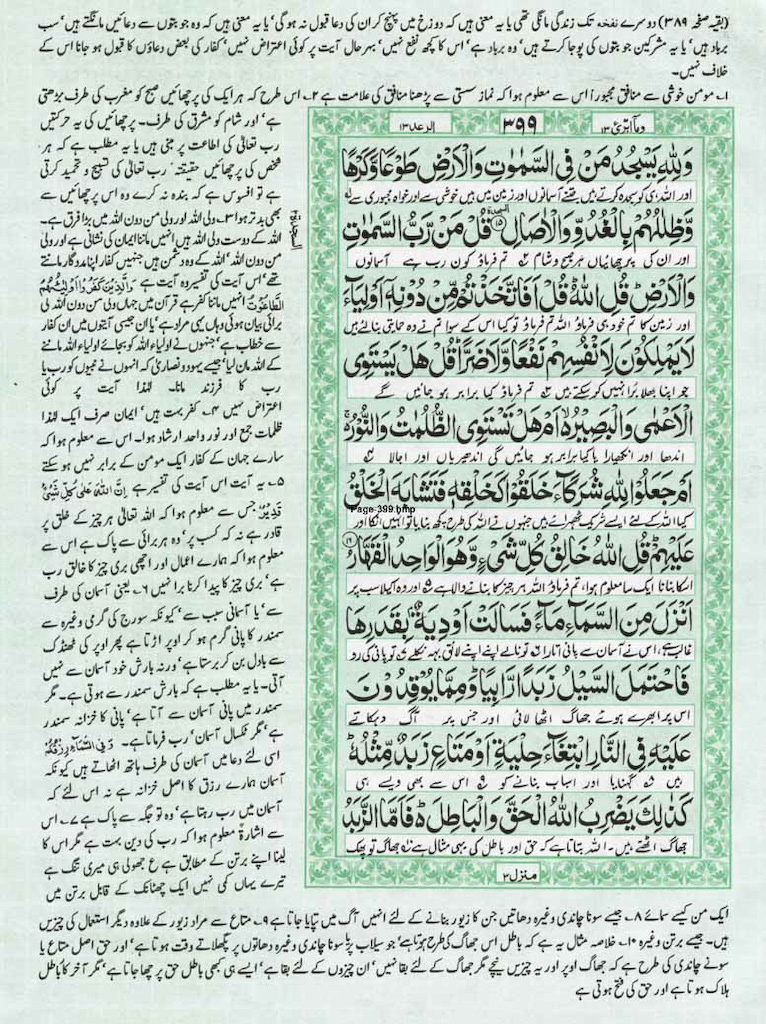 (بقیہ صفحہ ۳۸۹) دوسرے نفخہ تک زندگی مانگی تھی یا یہ معنی ہیں کہ دوزخ میں پہنچ کر ان کی دعا قبول نہ ہوگی' یا یہ معنی ہیں کہ وہ جو بتوں سے دعائیں مانگتے ہیں' سب
برباد ہیں' یا یہ مشرکین جو بتوں کی پوجا کرتے ہیں' وہ برباد ہے' اس کا کچھ نفع نہیں' بہرحال آیت پر کوئی اعتراض نہیں' کفار کی بعض دعاؤں کا قبول ہو جانا اس کے
خلاف نہیں۔
۱۔ مومن خوشی سے منافق مجبوراً اس سے معلوم ہوا کہ نماز سستی سے پڑھنا منافق کی علامت ہے ۲۔ اس طرح کہ ہر ایک کی پرچھائیں صبح کو مغرب کی طرف بڑھتی
ہے' اور شام کو مشرق کی طرف۔ پرچھائیں کی یہ حرکتیں
رب تعالٰی کی اطاعت پر مبنی ہیں یا یہ مطلب ہے کہ ہر
شخص کی پرچھائیں حقیقتہً رب تعالٰی کی تسبیح و تحمید کرتی
ہے تو افسوس ہے کہ بندہ نہ کرے وہ اس پرچھائیں سے
بھی بدتر ہوا ۳۔ ولی اللہ اور ولی من دون اللہ میں بڑا فرق ہے۔
اللہ کے دوست ولی اللہ ہیں انہیں ماننا ایمان کی نشانی ہے اور ولی
من دون اللہ' اللہ کے وہ دشمن ہیں جنہیں کفار اپنا مددگار مانتے
تھے' اس آیت کی تفسیر وہ آیت ہے وَالَّذِیْنَ کَفَرُوْا اَوْلِیٰٓئُہُمُ
الطَّاغُوْتُ انہیں ماننا کفر ہے قرآن میں جہاں ولی من دون اللہ کی
برائی بیان ہوئی وہاں یہی مراد ہے' یا ان جیسی آیتوں میں ان کفار
سے خطاب ہے' جنہوں نے اولیاء اللہ کو بجائے اولیاء اللہ ماننے
کے اللہ مان لیا' جیسے یہود و نصاریٰ کہ انہوں نے نبیوں کو رب یا
رب کا فرزند مانا۔ لہٰذا آیت پر کوئی
اعتراض نہیں ۴۔ کفر بہت ہیں' ایمان صرف ایک لہٰذا
ظلمات جمع اور نور واحد ارشاد ہوا۔ اس سے معلوم ہوا کہ
سارے جہان کے کفار ایک مومن کے برابر نہیں ہو سکتے
۵۔ یہ آیت اس آیت کی تفسیر ہے اِنَّ اللّٰہَ عَلٰی کُلِّ شَیْءٍ
قَدِیْرٌ جس سے معلوم ہوا کہ اللہ تعالٰی ہر چیز کے خلق پر
قادر ہے نہ کہ کسب پر' وہ ہر برائی سے پاک ہے اس سے
معلوم ہوا کہ ہمارے اعمال اور اچھی بری چیز کا خالق رب
ہے' بری چیز کا پیدا کرنا برا نہیں ۶۔ یعنی آسمان کی طرف
سے' یا آسمانی سبب سے' کیونکہ سورج کی گرمی وغیرہ سے
سمندر کا پانی گرم ہو کر اوپر اڑتا ہے پھر اوپر کی ٹھنڈک
سے بادل بن کر برستا ہے' ورنہ بارش خود آسمان سے نہیں
آتی۔ یا یہ مطلب ہے کہ بارش سمندر سے ہوتی ہے۔ مگر
سمندر میں پانی آسمان سے آتا ہے' پانی کا خزانہ سمندر
ہے' مگر ٹکسال آسمان' رب فرماتا ہے۔ وَفِی السَّمَآءِ رِزْقُکُمْ
اسی لئے دعا میں آسمان کی طرف ہاتھ اٹھاتے ہیں کیونکہ
آسمان ہمارے رزق کا اصل خزانہ ہے نہ اس لئے کہ
آسمان میں رب رہتا ہے' وہ تو جگہ سے پاک ہے ۷۔ اس
سے اشارۃً معلوم ہوا کہ رب کی دین بہت ہے مگر اس کا
لینا اپنے برتن کے مطابق ہے ع جھولی ہی میری تنگ ہے
تیرے یہاں کمی نہیں ایک چھٹانک کے قابل برتن میں
وما ابرئ ۱۳
۳۹۹
الرعد ۱۳
وَلِلّٰهِ يَسْجُدُ مَنْ فِى السَّمٰوٰتِ وَالْاَرْضِ طَوْعًا وَّكَرْهًا
اور اللہ ہی کو سجدہ کرتے ہیں جتنے آسمانوں اور زمین میں ہیں خوشی سے اور خواہ مجبوری سے ۱
وَّظِلٰلُهُمْ بِالْغُدُوِّ وَالْاٰصَالِ ۩ ﴿۱۵﴾ قُلْ مَنْ رَّبُّ السَّمٰوٰتِ
السجدة
اور ان کی پرچھائیاں ہر صبح و شام ۲ تم فرماؤ کون رب ہے آسمانوں
وَالْاَرْضِ ؕ قُلِ اللّٰهُ ؕ قُلْ اَفَاتَّخَذْتُمْ مِّنْ دُوْنِهٖۤ اَوْلِيَآءَ
اور زمین کا تم خود ہی فرماؤ اللہ تم فرماؤ تو کیا اس کے سوا تم نے وہ حمایتی بنا لئے ہیں
لَا يَمْلِكُوْنَ لِاَنْفُسِهِمْ نَفْعًا وَّلَا ضَرًّا ؕ قُلْ هَلْ يَسْتَوِى
جو اپنا بھلا برا نہیں کر سکتے ہیں ۳ تم فرماؤ کیا برابر ہو جائیں گے
الْاَعْمٰى وَالْبَصِيْرُ ۙ اَمْ هَلْ تَسْتَوِى الظُّلُمٰتُ وَالنُّوْرُ ۚ
اندھا اور انکھیارا یا کیا برابر ہو جائیں گی اندھیریاں اور اجالا ۴
اَمْ جَعَلُوْا لِلّٰهِ شُرَكَآءَ خَلَقُوْا كَخَلْقِهٖ فَتَشَابَهَ الْخَلْقُ
Page-399.bmp
کیا اللہ کے لئے ایسے شریک ٹھہرائے ہیں جنہوں نے اللہ کی طرح کچھ بنایا تو انہیں انکا اور
عَلَيْهِمْ ؕ قُلِ اللّٰهُ خَالِقُ كُلِّ شَىْءٍ وَّهُوَ الْوَاحِدُ الْقَهَّارُ ﴿۱۶﴾
اسکا بنانا ایک سا معلوم ہوا، تم فرماؤ اللہ ہر چیز کا بنانے والا ہے ۵ اور وہ اکیلا سب پر
اَنْزَلَ مِنَ السَّمَآءِ مَآءً فَسَالَتْ اَوْدِيَةٌۢ بِقَدَرِهَا
غالب ہے، اس نے آسمان سے پانی اتارا ۶ تو نالے اپنے اپنے لائق بہہ نکلے ۷ تو پانی کی رو
فَاحْتَمَلَ السَّيْلُ زَبَدًا رَّابِيًا ؕ وَمِمَّا يُوْقِدُوْنَ
اس پر ابھرے ہوئے جھاگ اٹھا لائی اور جس پر آگ دہکاتے
عَلَيْهِ فِى النَّارِ ابْتِغَآءَ حِلْيَةٍ اَوْ مَتَاعٍ زَبَدٌ مِّثْلُهٗ ؕ
ہیں ۸ گہنایا اور اسباب بنانے کو ۹ اس سے بھی ویسے ہی
كَذٰلِكَ يَضْرِبُ اللّٰهُ الْحَقَّ وَالْبَاطِلَ ۬ؕ فَاَمَّا الزَّبَدُ
جھاگ اٹھتے ہیں۔ اللہ بتاتا ہے کہ حق اور باطل کی یہی مثال ہے ۱۰ جھاگ تو پھک
منزل ۳
ایک من کیسے سمائے ۸۔ جیسے سونا چاندی وغیرہ دھاتیں جن کا زیور بنانے کے لئے انہیں آگ میں تپایا جاتا ہے ۹۔ متاع سے مراد زیور کے علاوہ دیگر استعمال کی چیزیں
ہیں۔ جیسے برتن وغیرہ ۱۰۔ خلاصہ مثال یہ ہے کہ باطل اس جھاگ کی طرح ہوتا ہے' جو سیلاب پر یا سونا چاندی وغیرہ دھاتوں پر پگھلاتے وقت ہوتا ہے' اور حق اصل متاع یا
سونے چاندی کی طرح ہے کہ جھاگ اوپر اور یہ چیزیں نیچے مگر جھاگ کے لئے بقا نہیں' ان چیزوں کے لئے بقا ہے' ایسے ہی کبھی باطل حق پر چھا جاتا ہے' مگر آخر کار باطل
ہلاک ہوتا ہے اور حق کی فتح ہوتی ہے